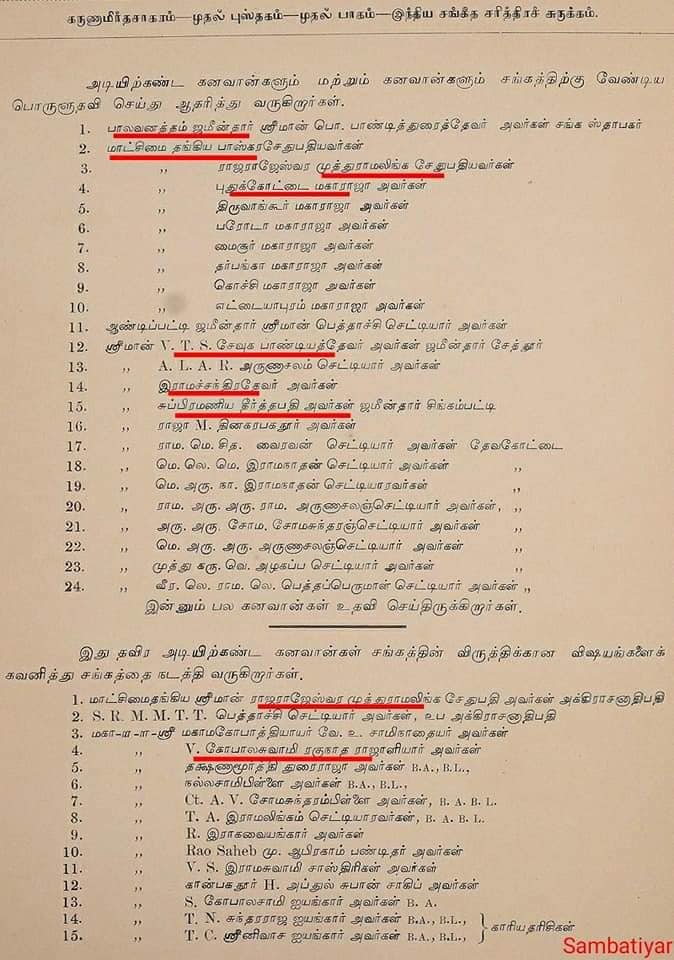 கருணாமிர்தசாகரம்—முதல் புஸ்தகம்—முதல் பாகம்—இந்திய சங்கீத சரித்திரச் சுருக்கம்.
அடியிற்கண்ட கனவான்களும் மற்றும் கனவான்களும் சங்கத்திற்கு வேண்டிய
பொருளுதவி செய்து ஆதரித்து வருகிறார்கள்.
1. பாலவனத்தம் ஜமீன்தார் ஸ்ரீமான் பொ. பாண்டித்துரைத்தேவர் அவர்கள் சங்க ஸ்தாபகர்
2. மாட்சிமை தங்கிய பாஸ்கரசேதுபதியவர்கள்
3. ,, ராஜராஜேஸ்வர முத்துராமலிங்க சேதுபதியவர்கள்
4. ,, புதுக்கோட்டை மகாராஜா அவர்கள்
5. ,, திருவாங்கூர் மகாராஜா அவர்கள்
6. ,, பரோடா மகாராஜா அவர்கள்
7. ,, மைசூர் மகாராஜா அவர்கள்
8. ,, தர்பங்கா மகாராஜா அவர்கள்
9. ,, கொச்சி மகாராஜா அவர்கள்
10. ,, எட்டையாபுரம் மகாராஜா அவர்கள்
11. ஆண்டிப்பட்டி ஜமீன்தார் ஸ்ரீமான் பெத்தாச்சி செட்டியார் அவர்கள்
12. ஸ்ரீமான் V. T. S. சேவுக பாண்டியத்தேவர் அவர்கள் ஜமீன்தார் சேத்தூர்
13. ,, A. L. A. R. அருணாசலம் செட்டியார் அவர்கள்
14. ,, இராமச்சந்திரதேவர் அவர்கள்
15. ,, சுப்பிரமணிய தீர்த்தபதி அவர்கள் ஜமீன்தார் சிங்கம்பட்டி
16. ,, ராஜா M. தினகரபகதூர் அவர்கள்
17. ,, ராம. மெ. சித. வைரவன் செட்டியார் அவர்கள் தேவகோட்டை
18. ,, மெ. லெ. மெ. இராமநாதன் செட்டியார் அவர்கள் ,,
19. ,, மெ. அரு. நா. இராமநாதன் செட்டியாரவர்கள் ,,
20. ,, ராம. அரு. அரு. ராம. அருணாசலஞ்செட்டியார் அவர்கள், ,,
21. ,, அரு. அரு. சோம. சோமசுந்தரஞ்செட்டியார் அவர்கள் ,,
22. ,, மெ. அரு. அரு. அருணாசலஞ்செட்டியார் அவர்கள் ,,
23. ,, முத்து கரு. வெ. அழகப்ப செட்டியார் அவர்கள் ,,
24. ,, வீர. லெ. ராம. லெ. பெத்தப்பெருமான் செட்டியார் அவர்கள் ,,
இன்னும் பல கனவான்கள் உதவி செய்திருக்கிறார்கள்.
இது தவிர அடியிற்கண்ட கனவான்கள் சங்கத்தின் விருத்திக்கான விஷயங்களைக்
கவனித்து சங்கத்தை நடத்தி வருகிறார்கள்.
1. மாட்சிமைதங்கிய ஸ்ரீமான் ராஜராஜேஸ்வர முத்துராமலிங்க சேதுபதி அவர்கள் அக்கிராசனாதிபதி
2. S. R. M. M. T. T. பெத்தாச்சி செட்டியார் அவர்கள், உப அக்கிராசனாதிபதி
3. மகா-ய-ள-ஸ்ரீ மகாமகோபாத்தியாயர் வே. உ. சாமிநாதையர் அவர்கள்
4. ,, V. கோபாலசுவாமி ரகுநாத ராஜாளியார் அவர்கள்
5. ,, தக்ஷணாமூர்த்தி துரைராஜா அவர்கள் B.A., B.L.,
6. ,, நல்லசாமிபிள்ளை அவர்கள் B.A., B.L.,
7. ,, Ct. A. V. சோமசுந்தரம்பிள்ளை அவர்கள், B. A. B. L.
8. ,, T. A. இராமலிங்கம் செட்டியாரவர்கள், B. A. B. L.
9. ,, R. இராகவையங்கார் அவர்கள்
10. ,, Rao Saheb மு. ஆபிரகாம் பண்டிதர் அவர்கள்
11. ,, V. S. இராமசுவாமி சாஸ்திரிகள் அவர்கள்
12. ,, கான்பகதூர் H. அப்துல் சுபான் சாகிப் அவர்கள்
13. ,, S. கோபாலசாமி ஐயங்கார் அவர்கள் B. A.
14. ,, T. N. சுந்தரராஜ ஐயங்கார் அவர்கள் B.A., B.L., } காரியதரிசிகள்
15. ,, T. C. ஸ்ரீனிவாச ஐயங்கார் அவர்கள் B.A., B.L.,
Sambatiyar